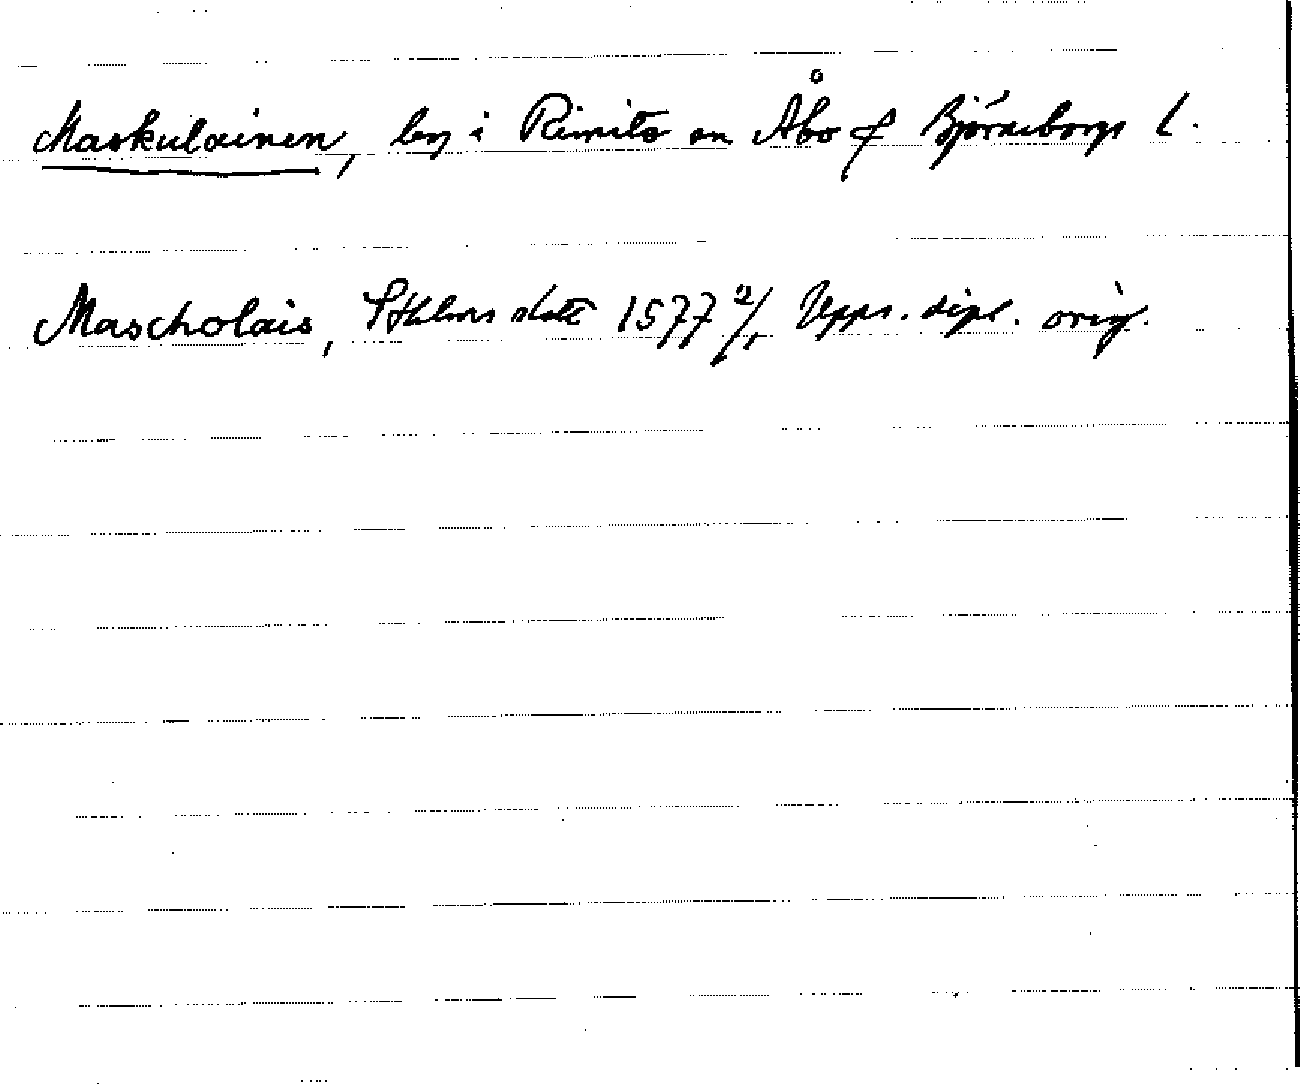 Maskulainen, by i Rimito sn Åbo & Björneborgs l.
Mascholais, Sthlms slott 1577 2/1 Upps. dipl. orig.